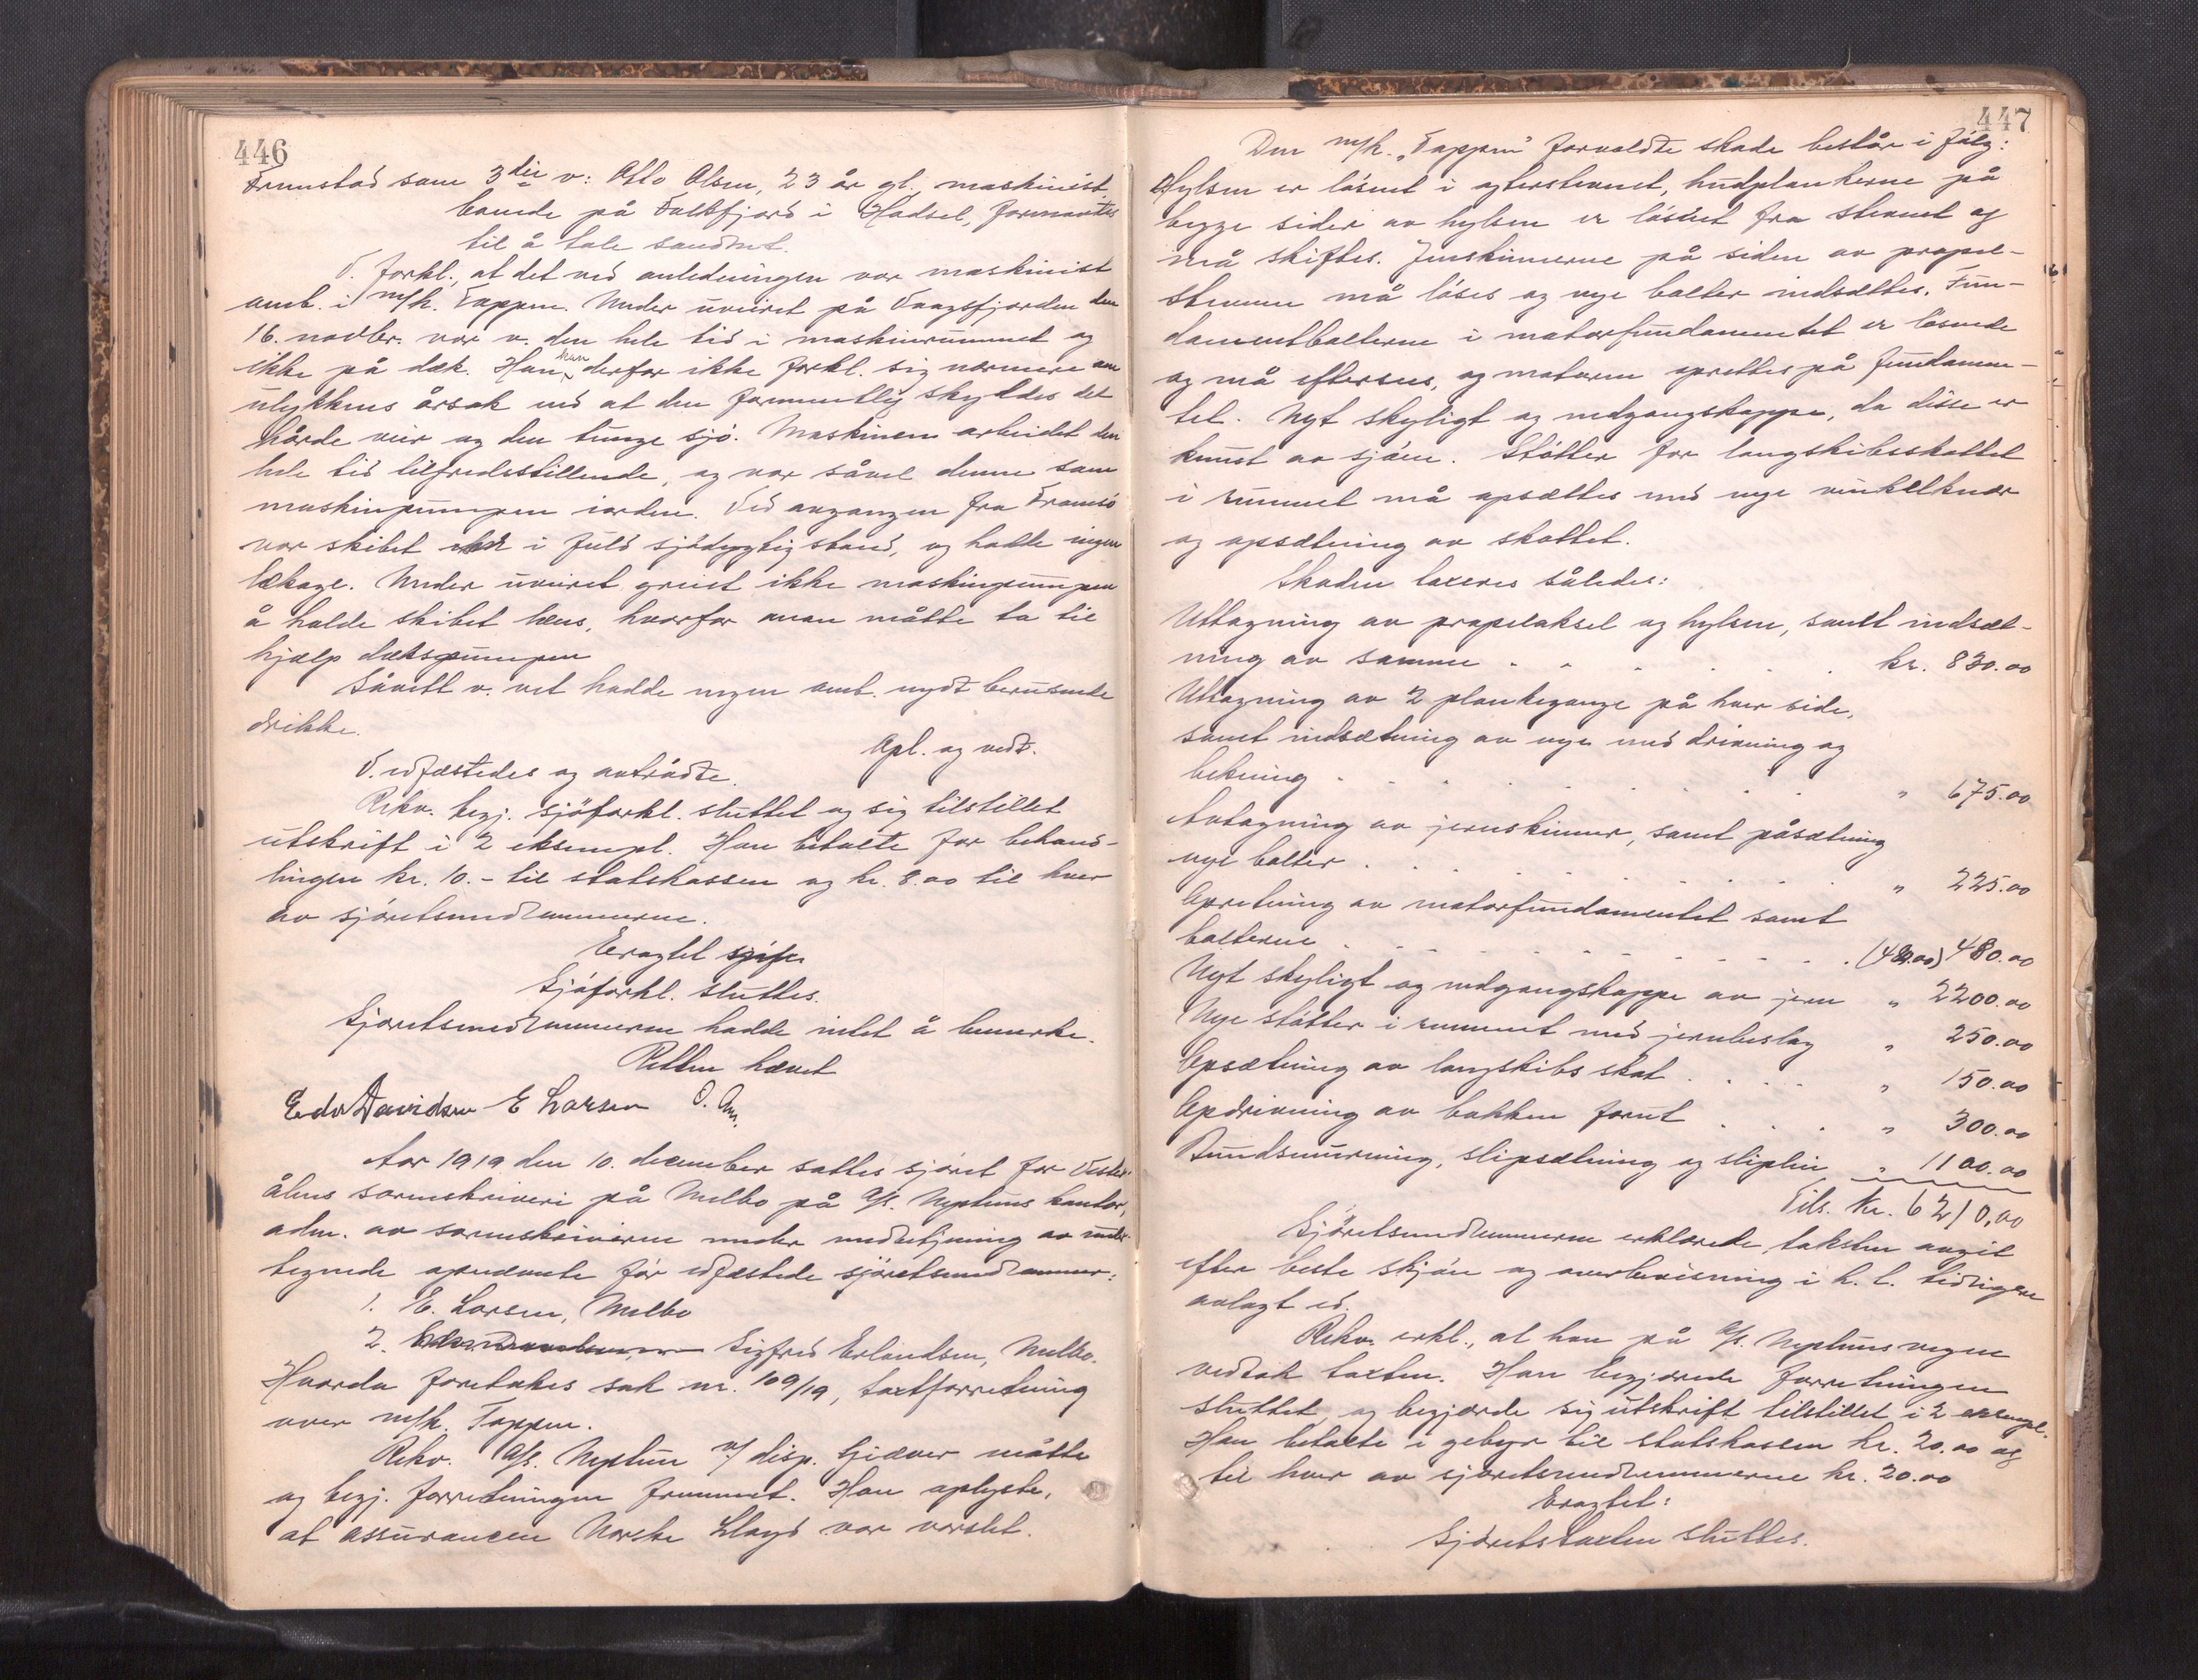 446
Fremstod som 3die v: Otto Olsen, 23 år gl., maskinist
boende på Falkfjord i Hadsel, formantes
til å tale sandhet.
V. forkl., at det ved anledningen var maskinist
omb. i m/k. Tappen. Under uveiret på Vaagsfjorden den
16. novbr. var v. den hele tid i maskinrummet og
ikke på dæk. Han kan derfor ikke forkl. sig nærmere om
ulykkens årsak end at den formentlig skyldtes det
hårde veir og den tunge sjø. Maskinen arbeidet den
hele tid tilfredsstillende, og var såvel denne som
maskinpumpen iorden. Ved avgangen fra Tromsö
var skibet i fuld sjødygtig stand, og hadde ingen
lækage. Under uveiret greiet ikke maskinpumpen
å holde skibet læns, hvorfor man måtte ta til
hjælp dækspumpen
Såvidt v. vet hadde ingen omb. nydt berusende
drikke.
Opl. og vedt.
V. edfæstedes og avtrådte.
Rekv. begj. sjöforkl. sluttet og sig tilstillet
utskrift i 2 eksempl. Han betalte for behand-
lingen kr. 10.- til statskassen og kr. 8.00 til hver
av sjöretsmedlemmerne.
Eragtet
Sjöforkl. sluttes.
Sjøretsmedlemmerne hadde intet å bemerke.
Retten hævet
Edv Davidsen E Larsen O. Am.
Aar 1919 den 10. december sattes sjöret for Vester-
ålens sorenskriveri på Melbo på A/S. Neptuns kontor,
adm. av sorenskriveren under medbetjening av under-
tegnede opnævnte för edfæstede sjöretsmedlemmer:
1. E. Larsen, Melbo
2. Sigfred Erlandsen, Melbo.
Hvorda foretokes sak nr. 109/19, taxtforretning
over m/k. Tappen.
Rekv. A/S. Neptun v/ disp. Gjæver møtte
og begj. forretningen fremmet. Han oplyste,
at assurancen Norske Lloyd var varslet.
447
Den m/k. "Tappen" forvoldte skade består i følg:
Hylsen er løsnet i agterstevnet, hudplankerne på
begge sider av hylsen er løsnet fra stevnet og
må skiftes. Jernskinnerne på siden av propel-
stevnen må löses og nye bolter indsættes. Fun-
damentbolterne i motorfundamentet er løsnede
og må eftersees, og motoren oprettes på fundamen-
tet. Nyt skyligt og nedgangskappe, da disse er
knust av sjøen. Støtter for langskibsskottet
i rummet må opsættes med nye vinkelknær
og opsætning av skottet.
Skaden taxeres således:
Uttagning av propelaksel og hylsen, samt indsæt-
ning av samme . . . . . . kr. 830.00
Uttagning av 2 plankegange på hver side,
samt indsætning av nye med drivning og
bekning . . . . . . . . . " 675.00
Avtagning av jernskinner, samt påsætning
nye bolter . . . . . . . . . " 225.00
Opretning av motorfundamentet samt
bolterne . . . . . . . . . . (480.00) 480.00
Nyt skyligt og nedgangskappe av jern " 2200.00
Nye støtter i rummet med jernbeslag " 250.00
Opsætning av langskibs skot . . . . " 150.00
Opdrivning av bakken forut . . . . " 300.00
Bundsmurning, slipsætning og slipleie " 1100.00
Tils. kr. 6210,00
Sjöretsmedlemmerne erklærede taksten avgit
efter beste skjön og overbevisning i h. t. tidligere
avlagt ed.
Rekv. erkl., at han på A/S. Neptuns vegne
vedtok taxten. Han begjærede forretningen
sluttet og begjærde sig utskrift tilstillet i 2 exempl.
Han betalte i gebyr til statskassen kr. 20.00 og
til hver av sjøretsmedlemmerne kr. 20.00
Eragtet:
Sjøretstaxten sluttes.